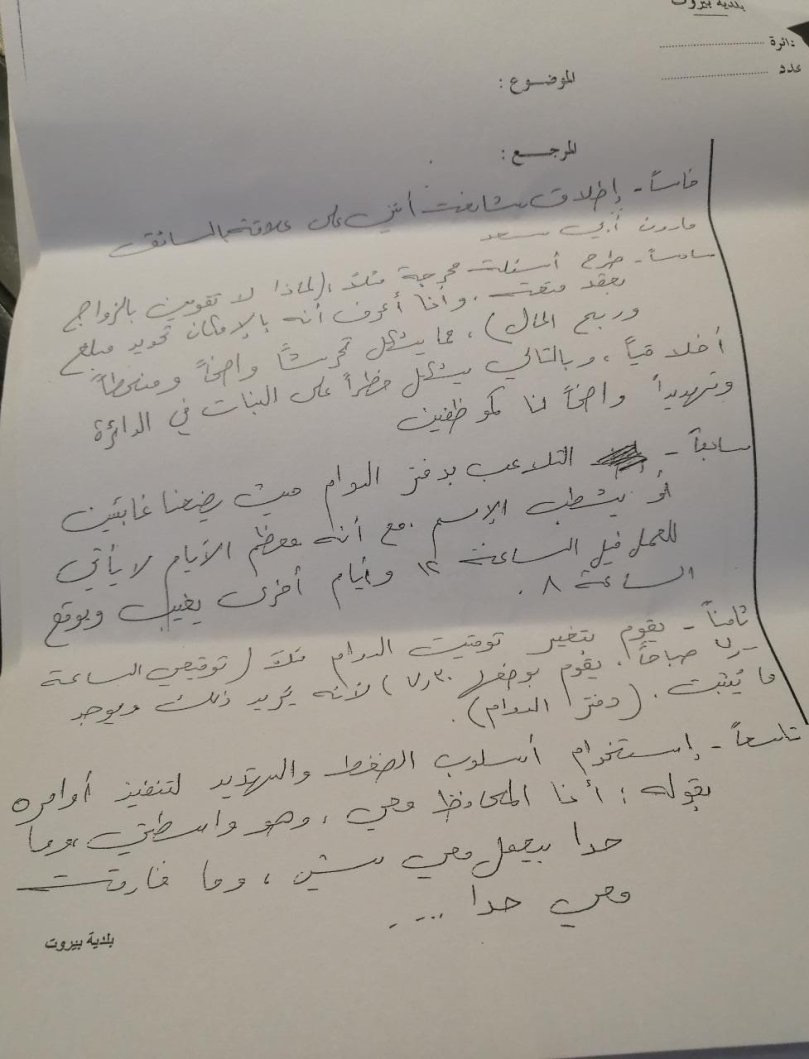 بلدية بيروت
دائرة
عدد
الموضوع :
المرجع :
خامساً - إطلاق شائعات أنني على علاقة بالسائق
مارون أبي سعد
سادساً - طرح أسئلت محرجة مثلاً، (لماذا لا تقومين بالزواج
بعقد متعة، وأنا أعرف أنه بالإمكان تحديد مبلغ
وربح المال)، مما يشكل تحرشاً واضحاً ومنحطاً
أخلاقياً، وبالتالي يشكل خطراً على البنات في الدائرة
وتهديداً واضحاً لنا كموظفين
سابعاً - التلاعب بدفتر الدوام حيث يضعنا غائبين
أو يشطب الإسم. مع أنه معظم الأيام لا يأتي
للعمل قبل الساعة ١٢ وأيام أخرى يغيب ويوقع
الساعة ٨.
ثامناً - يقوم بتغير توقيت الدوام مثلاً (توقيعي الساعة
صباحاً. يقوم بوضعها ٧،٣٠) لأنه يريد ذلك ويوجد
ما يُثبت. (دفتر الدوام).
تاسعاً - إستخدام أسلوب الضغط والتهديد لتنفيذ أوامره
بقوله : أنا المحافظ معي، وهو واسطتي، وما
حدا بيعمل معي شي، وما فارقت
معي حدا ....
بلدية بيروت